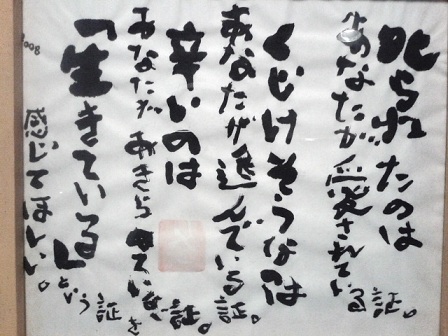 叱られたのは
あなたが愛されている証。
くじけそうなのは
あなたが進んでいる証。
辛いのは
あなたがあきらめていない証。
「生きている」という証を
感じてほしい。
2008